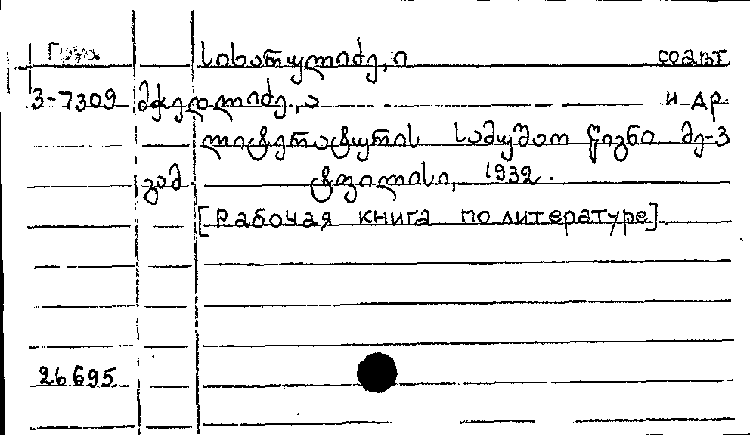 Груз
სიხარულიძე, ი соавт
3-7309 მჭედლიძე., ა и др
ლიტერატურის სამუშაო წიგნი მე-3
გამ ტფილისი, 1932.
[Рабочая книга по литературе]
26695